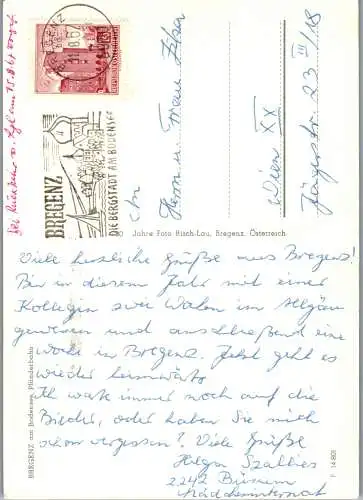 BREGENZ
11.8.67
REPUBLIK ÖSTERREICH
BREGENZ
DIE BERGSTADT AM BODENSEE
An
Herrn u. Frau
Wien XX
Jägerstr. 23 III/18
Jahre Foto Risch-Lau, Bregenz, Österreich
BREGENZ am Bodensee, Pfänderbahn
F 14 801
Viele herzliche Grüße aus Bregenz!
Bin in diesem Jahr mit einer
Kollegin zwei Wochen im Allgäu
gewesen und anschließend eine
Woche in Bregenz. Jetzt geht es
wieder heimwärts
Ich warte immer noch auf die
Bilder, oder haben Sie mich
schon vergessen? Viele Grüße
Helga Szallies
2242 Büsum